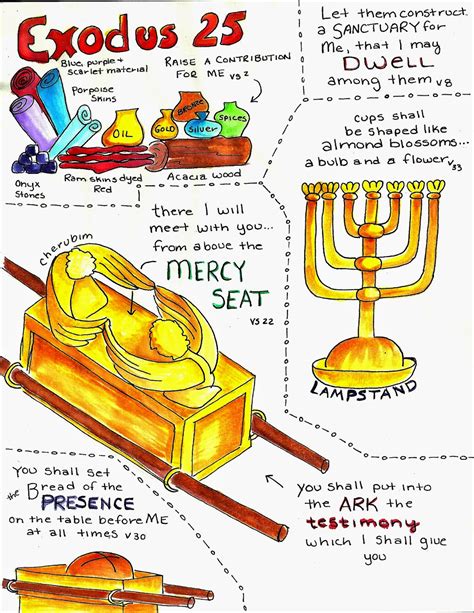 Exodus 25
Blue, purple +
Scarlet material
RAISE A CONTRIBUTION
FOR ME vs 2
Porpoise
Skins
OIL
GOLD
BRONZE
Silver
SPICES
Onyx
Stones
Ram skins dyed
Red
Acacia wood
Let them construct
a SANCTUARY for
Me, that I may
DWELL
among them v8
cups shall
be shaped like
almond blossoms...
a bulb and a flower v33
LAMPSTAND
cherubim
there I will
meet with you...
from above the
MERCY
SEAT
vs 22
You shall set
the Bread of the
PRESENCE
on the table before ME
at all times v30
You shall put into
the ARK the
testimony
which I shall give
you